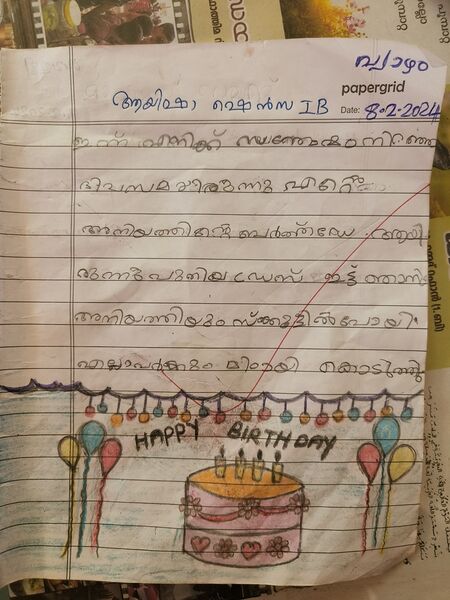 വ്യാഴം
papergrid
ആയിഷാ ഷെൻസ IB Date: 8-2-2024
ഇന്ന് എനിക്ക് സന്തോഷം നിറഞ്ഞ
ദിവസമായിരുന്നു എന്റെ
അനിയത്തിന്റെ ബർത്ത്ഡേ ആയി
രുന്നു പുതിയ ഡ്രസ് ഇട്ട് ഞാനും
അനിയത്തിയും സ്ക്കൂളിൽ പോയി
എല്ലാവർക്കും മിഠായി കൊടുത്തു
HAPPY BIRTHDAY